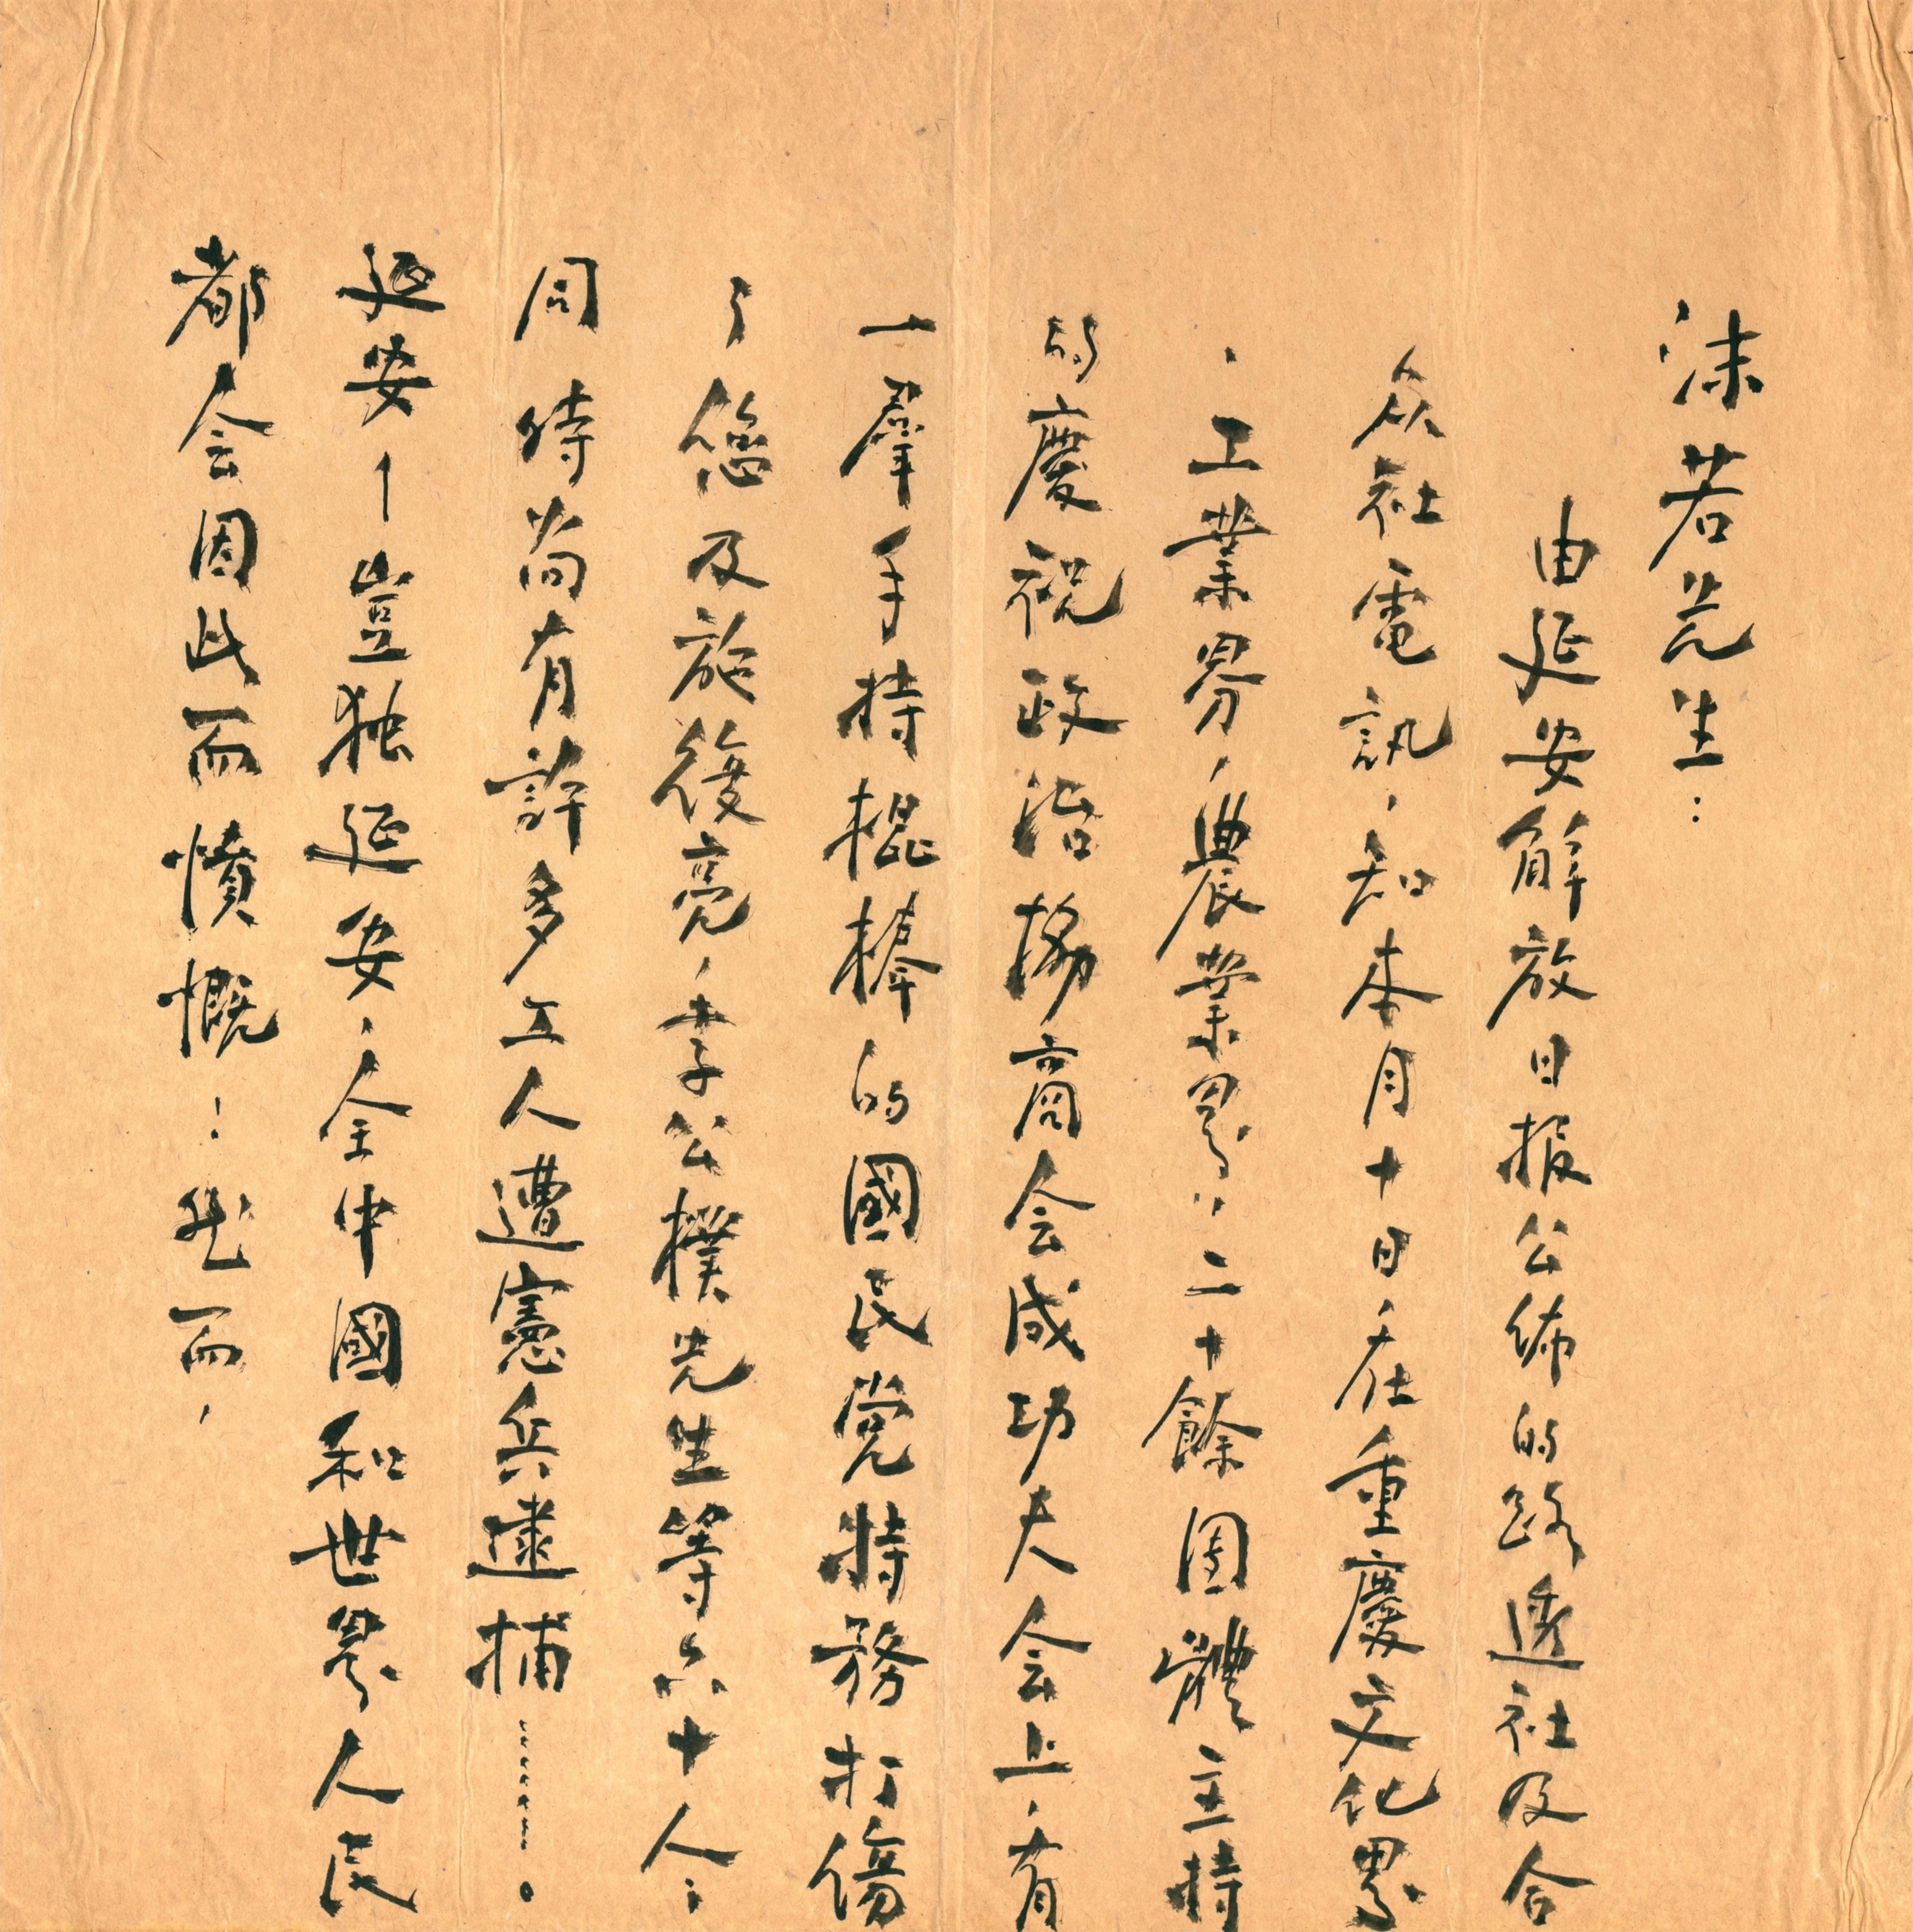 沫若先生：
由延安解放日报公佈的路透社及合
众社電訊，知本月十日，在重慶文化界
，工業界，農業界……二十餘团體主持
的慶祝政治協商会成功大会上，有
一羣手持棍棒的國民党特務打傷
了您及施復亮，李公樸先生等六十人；
同時尚有許多工人遭憲兵逮捕………。
延安—豈独延安，全中國和世界人民
都会因此而憤慨！然而，